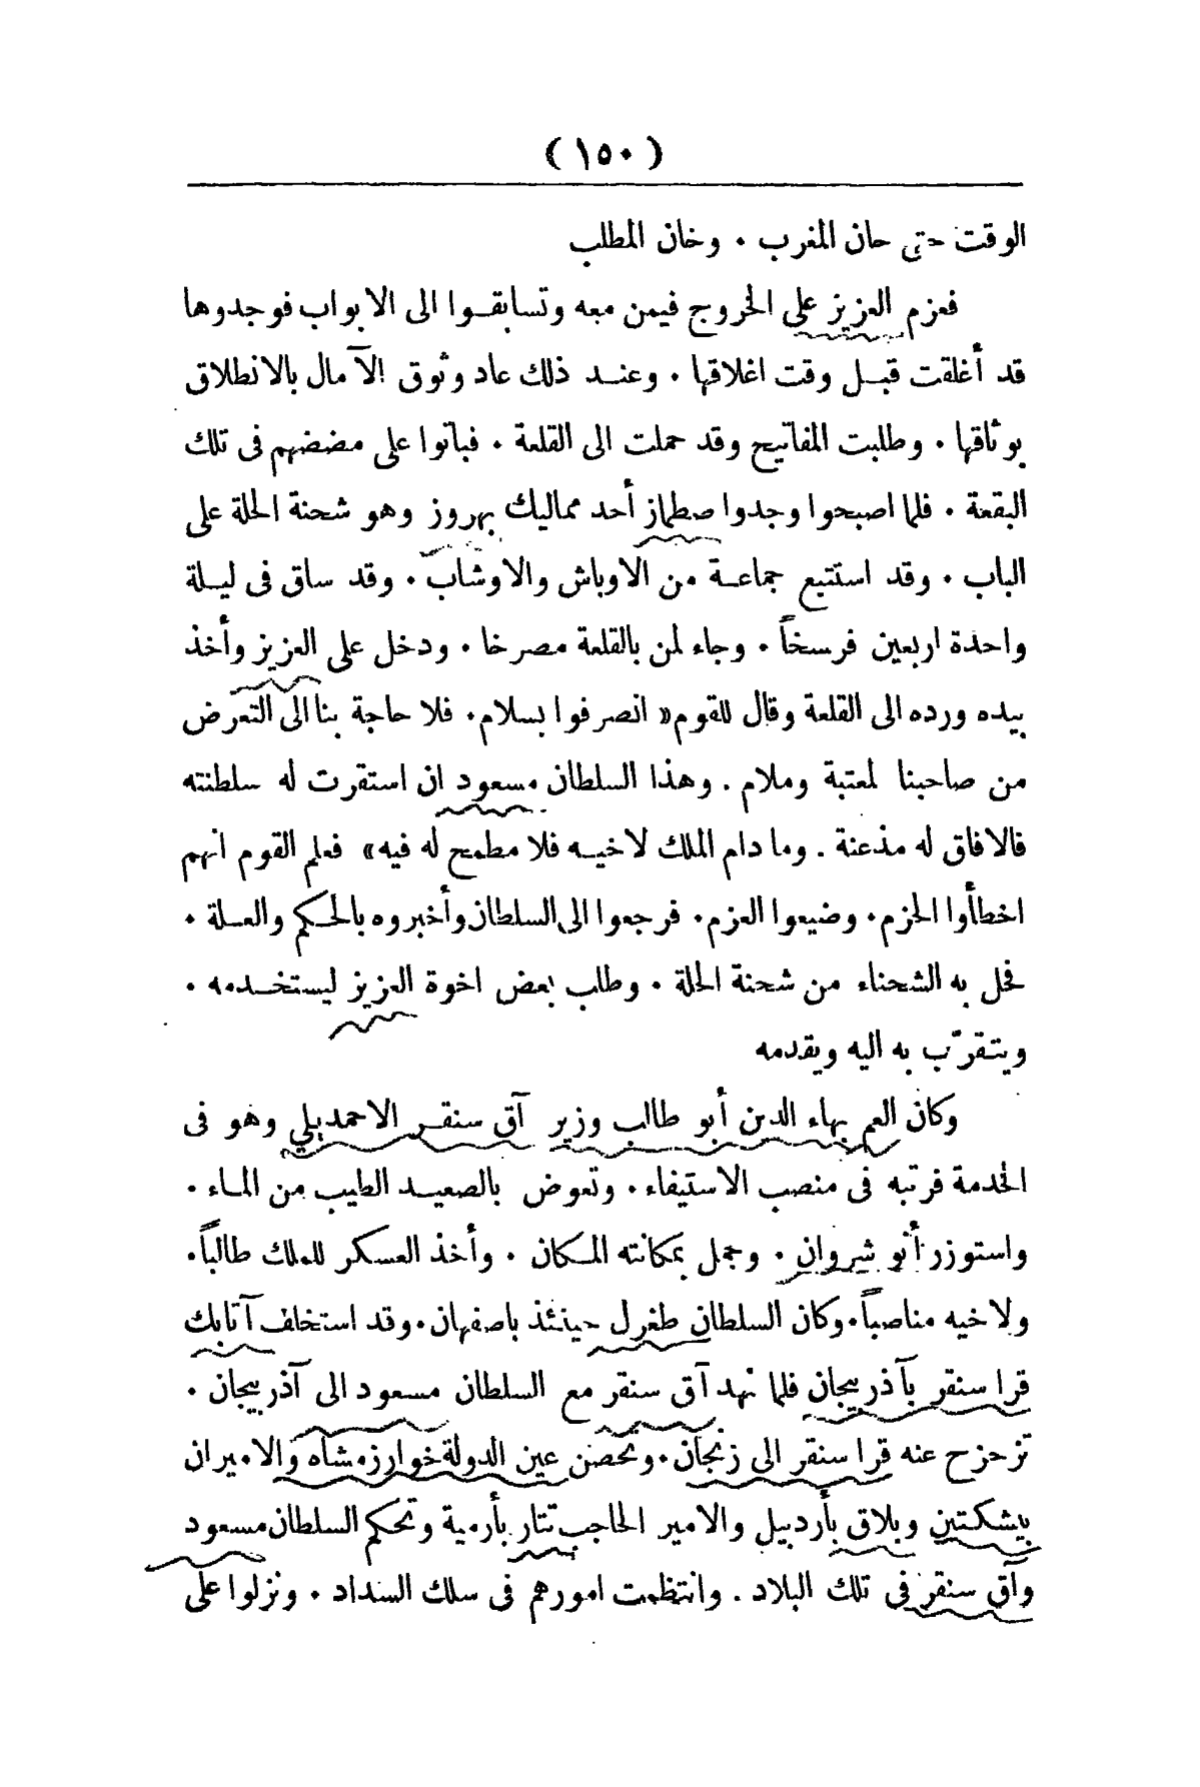 ( ١٥٠ )
الوقت حتى حان المغرب ٠ وخان المطلب
فعزم العزيز على الخروج فيمن معه وتسابقوا الى الابواب فوجدوها
قد أغلقت قبل وقت اغلاقها ٠ وعند ذلك عاد وثوق الآمال بالانطلاق
بوثاقها ٠ وطلبت المفاتيح وقد حملت الى القلعة ٠ فباتوا على مضضهم فى تلك
البقعة ٠ فلما اصبحوا وجدوا صطماز أحد مماليك بهروز وهو شحنة الحلة على
الباب ٠ وقد استتبع جماعة من الاوباش والاوشاب ٠ وقد ساق فى ليلة
واحدة اربعين فرسخاً ٠ وجاء لمن بالقلعة مصرخا ٠ ودخل على العزيز وأخذ
بيده ورده الى القلعة وقال للقوم « انصرفوا بسلام ٠ فلا حاجة بنا الى التعرض
من صاحبنا لمعتبة وملام . وهذا السلطان مسعود ان استقرت له سلطنته
فالافاق له مذعنة . وما دام الملك لاخيه فلا مطمح له فيه » فعلم القوم انهم
اخطأوا الحزم ٠ وضيعوا العزم ٠ فرجعوا الى السلطان وأخبروه بالحكم والعلة ٠
فحل به الشحناء من شحنة الحلة ٠ وطلب بعض اخوة العزيز ليستخدمه ٠
ويتقرّب به اليه ويقدمه
وكان العم بهاء الدين أبو طالب وزير آق سنقر الاحمديلي وهو فى
الخدمة فرتبه فى منصب الاستيفاء ٠ وتعوض بالصعيد الطيب من الماء ٠
واستوزر أنو شروان ٠ وجمل بمكانته المكان ٠ وأخذ العسكر للملك طالباً ٠
ولاخيه مناصباً ٠ وكان السلطان طغرل حينئذ باصفهان ٠ وقد استخلف آتابك
قرا سنقر بآذربيجان فلما نهد آق سنقر مع السلطان مسعود الى آذربيجان ٠
تزحزح عنه قرا سنقر الى زنجان ٠ وتحصن عين الدولة خوارزمشاه والاميران
بيشكتين وبلاق بأردبيل والامير الحاجب تتار بأرمية وتحكم السلطان مسعود
وآق سنقر فى تلك البلاد . وانتظمت امورهم فى سلك السداد ٠ ونزلوا على